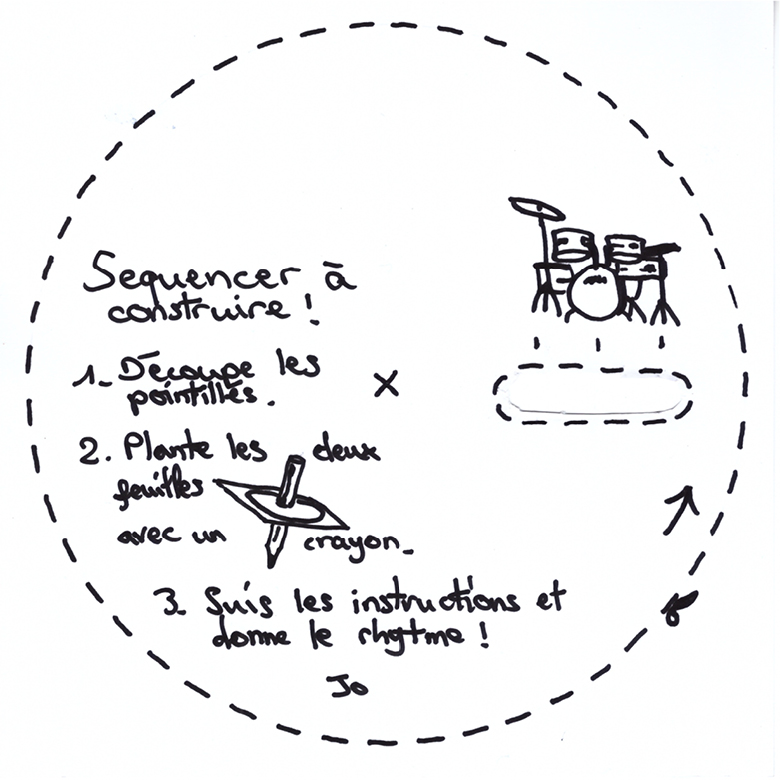 Sequencer à
construire !
1. Découpe les
pointillés.
2. Plante les deux
feuilles
avec un crayon.
3. Suis les instructions et
donne le rhytme !
Jo